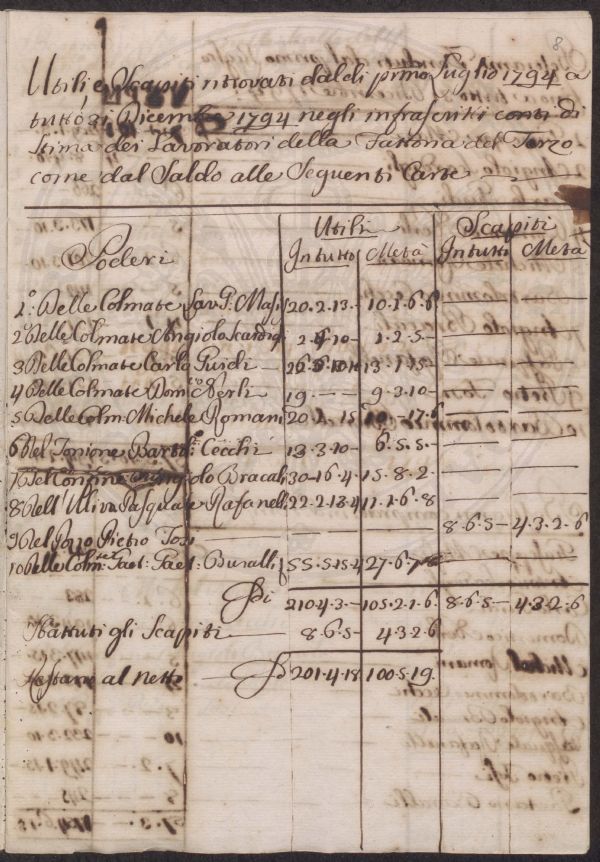 8
Utili e Scapiti ritrovati dal dì primo Luglio 1794 a
tutto 31 Dicembre 1794 negli infrascritti conti di
Stima dei Lavoratori della Fattoria del Terzo
come dal Saldo alle Seguenti Carte
Utili Scapiti
Poderi In tutto Metà In tutti Metà
1.° Delle Colmate Sav. P. Masi 20.2.13.— 10.1.6.6 — —
2° Delle Colmate Angiolo 2.4.10— 1.2.5.— — —
3 Delle Colmate Carlo Guidi — 26. 13.1.15 — —
4 Delle Colmate Dom.co Nerli 19.—.— 9.3.10— — —
5 Delle Colm: Michele Romani 20. 15 10.—.17.6 — —
6 Del Bart: Cecchi 13.3.10— 6.5.5.— — —
7 Del Confine Angiolo Bracali 30—16.4 15.8.2. — —
8 Dell'Uliva Pasquale Rafanelli 22.2.13.4 11.1.6.8 — —
9 Del Pozo Pietro Tosi — — — 8.6.5— 4.3.2.6
10 Delle Colm:te Gaet: Buralli 55.5.15.4 27.6.7.8 — —
210.4.3.— 105.2.1.6. 8.6.5— 4.3.2.6
Sbattuti gli Scapiti — 8.6.5— 4.3.2.6
Restano al netto — 201.4.18. 100.5.19.